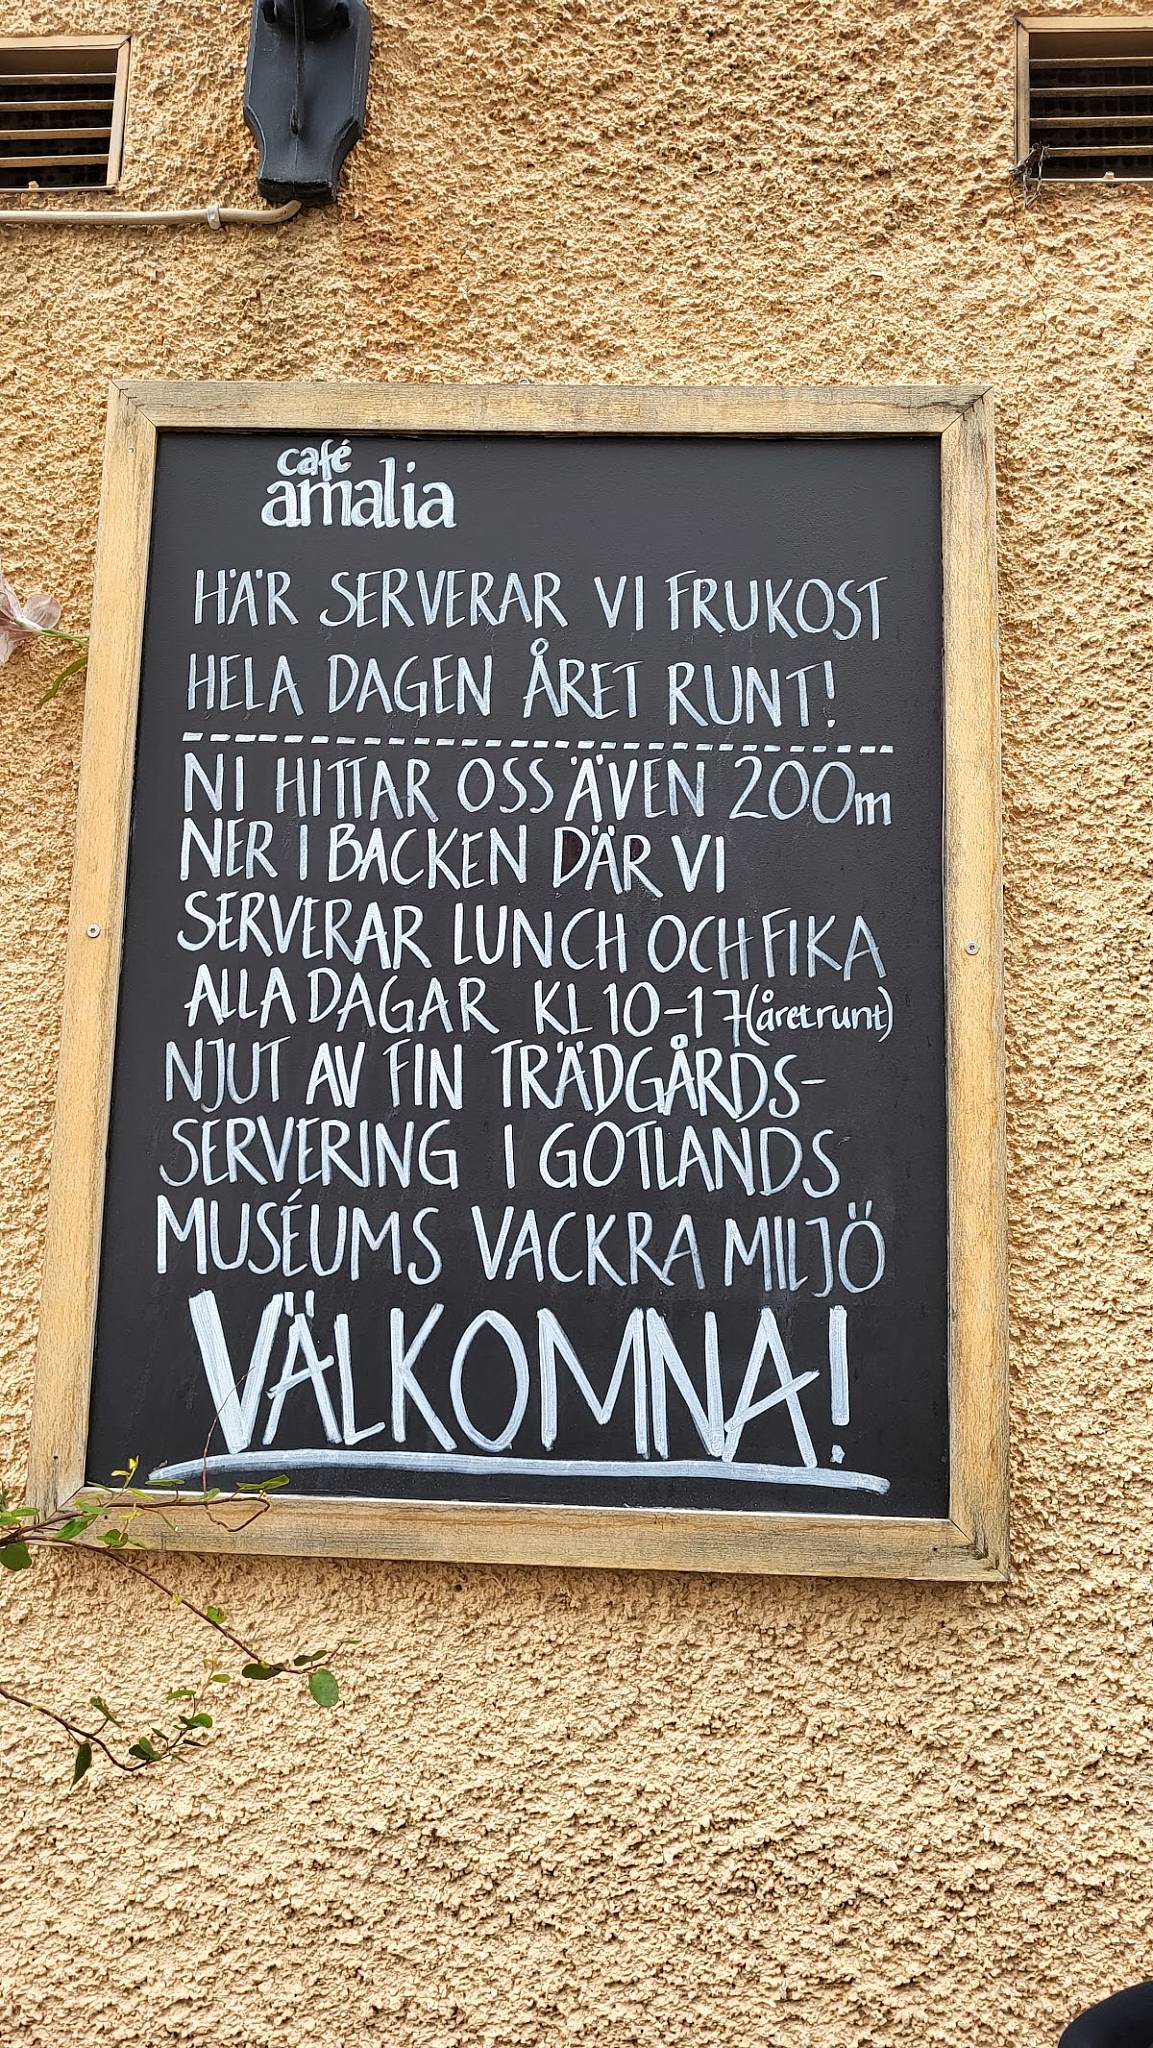 café
amalia
HÄR SERVERAR VI FRUKOST
HELA DAGEN ÅRET RUNT!
NI HITTAR OSS ÄVEN 200m
NER I BACKEN DÄR VI
SERVERAR LUNCH OCH FIKA
ALLA DAGAR KL 10-17 (året runt)
NJUT AV FIN TRÄDGÅRDS-
SERVERING I GOTLANDS
MUSÉUMS VACKRA MILJÖ
VÄLKOMNA!